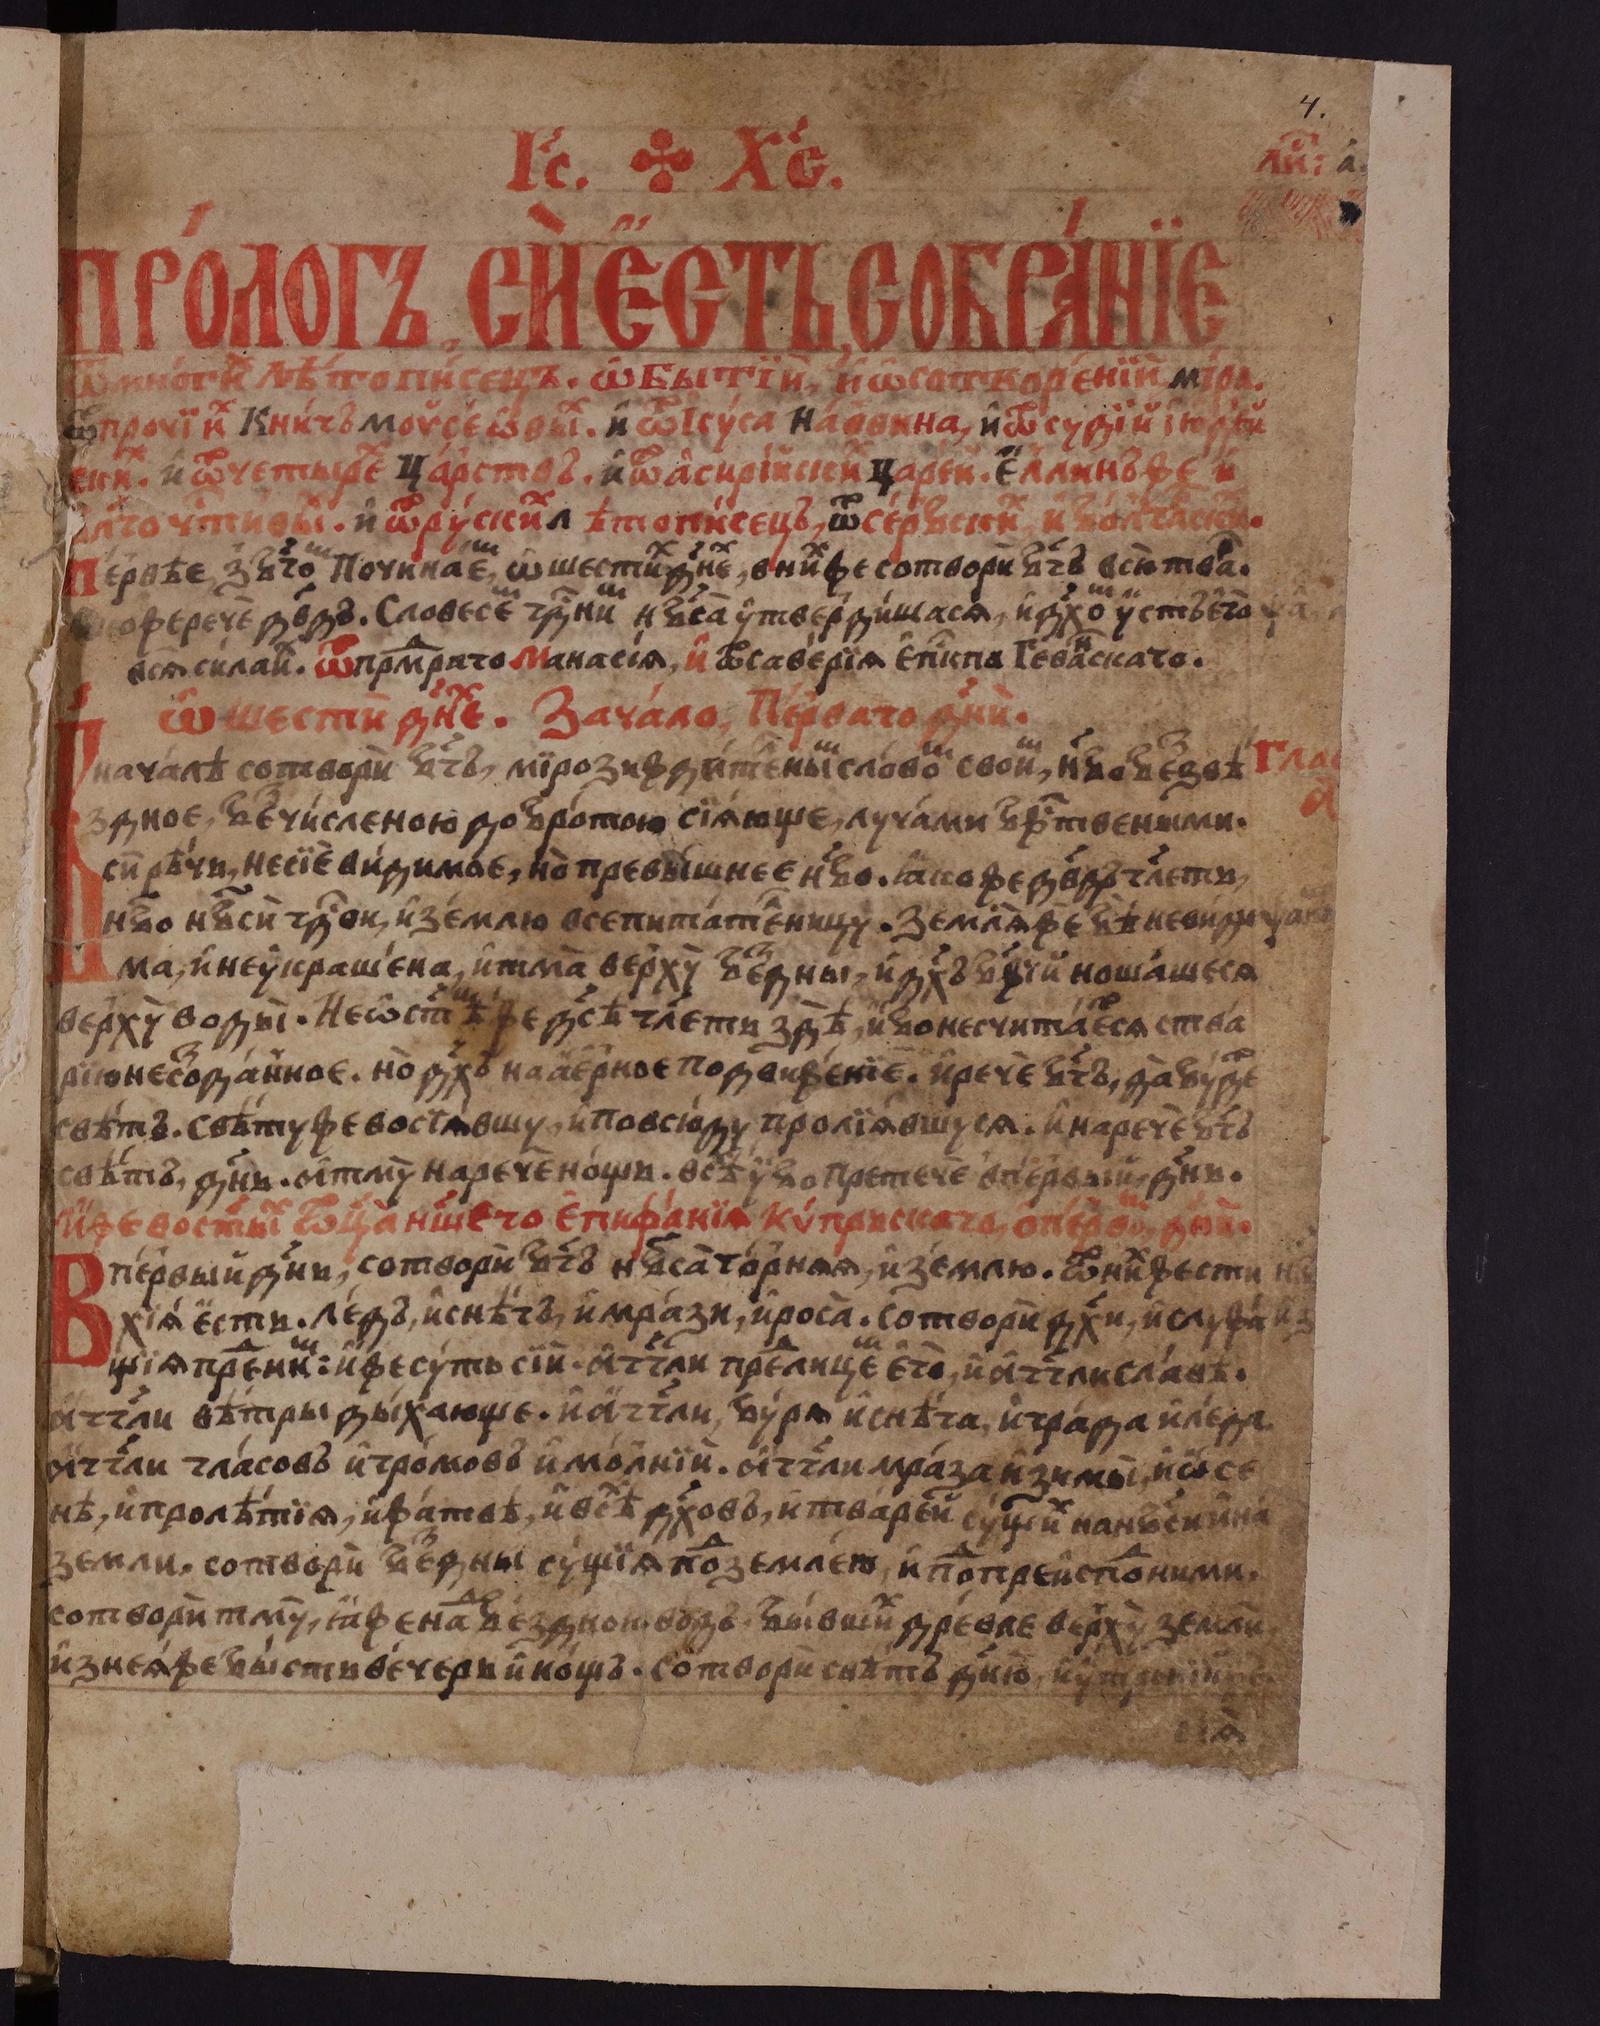 4.
І҃с. Х҃с.
ли: а҃.
ПРО́ЛОГЪ, СИ́ Е҆СТЬ, СОБРА́НІЕ
ѿ мно́гих лѣтопи́сецъ. ѡ҆ бытїи, и҆ ѡ҆ сотворе́нїи мі́ра.
ѿ прочїих Кни́гъ моѷсе́ѡвых. и҆ ѿ Ісу́са На́ввина, и҆ ѿ судїи їюдей
ских. и҆ ѿ четыре́х ца́рствъ. и҆ ѿ а҆сирі́йских царе́й. е҆ллинъ же и҆
бл҃гочтивых. и҆ ѿ ру́ских лѣтопи́сецъ, ѿ се́рбских, и҆ болгаских.
Пе́рвѣе, з б҃го Починае, ѡ шести д҃не, в них же сотвори̂ б҃гъ всю тва́.
ꙗкоже рече̂ д҃вдъ. Словесе г҃дни н҃бса у҆тверди́шася, и҆ д҃хо у҆стъ е҆го
вся сила и҆. ѿ прм҃раго Манасі́я, и҆ ѿ саве́рїя Е҆п҃кпа Гева́нскаго.
Ѡ҆ шести̂ д҃не. Зача́ло, Пе́рваго д҃ни̂.
В нача́лѣ сотвори̂ б҃гъ, мїрозижди́телны слово свои, н҃бо безвѣ Гла
здное, безчи́сленою добро́тою сїя́юще, луча́ми бж҃твеными. а҃
си рѣ́чь, не сїе̂ ви́димое, но̂ превы́шнее н҃бо. ꙗкоже д҃вдъ гл҃етъ,
н҃бо н҃бси̂ г҃дви, и҆ зе́млю всепита́телницу. Земля́ же бѣ̂ неви́ди
ма, и҆ неу҆краше́на, и҆ тма̂ верху̂ бе́здны, и҆ д҃хъ б҃жїй ноша́шеся
верху̂ воды̂. Не ѡ҆ ст҃ѣ же д҃сѣ гл҃етъ здѣ, и҆бо не счита́ется с тва
рїю несо́зданное. но̂ д҃хъ на а҆е́рное подвиже́нїе. и҆ рече̂ б҃гъ, да бу́де
свѣ́тъ. Свѣ́ту же воста́вшу, и҆ повсю́ду пролїя́вшуся. и҆ нарече̂ б҃гъ
свѣ́тъ, д҃нь. а҆ тму̂ нарече̂ но́щь. всѣ у҆бо претече̂ в пе́рвый д҃нь.
И҆же во ст҃ых ѿца̂ н҃шего Е҆пифа́нїя Ку́прьскаго, о҆ пе́рво, д҃ни.
В пе́рвый д҃нь, сотвори̂ б҃гъ н҃бса̂ го́рняя, и҆ зе́млю. ѿ них же сти
хїя̂ е҆сть. ле́дъ, и҆ снѣ́гъ, и҆ мра́зи, и҆ роса̂. сотвори̂ д҃хи, и҆ служа́
щїя пре ни: и҆же су́ть сїи̂. а҆гг҃ли пре лице е҆го, и҆ а҆гг҃ли сла́вѣ.
а҆гг҃ли вѣ́тры ды́хающе. и҆ а҆гг҃ли, бу́ря и҆ снѣ́га, и҆ гра́да и҆ ле́да.
а҆гг҃ли гла́совъ и҆ гро́мовъ и҆ мо́лнїи. а҆гг҃ли мра́за и҆ зимы̂, и҆ ѡ҆се
нѣ, и҆ пролѣ́тїя, и҆ жа́твѣ, и҆ всѣ д҃ховъ, и҆ тваре́й су́щих на н҃бси и҆ на
земли. сотвори̂ бе́здны су́щїя по земле́ю, и҆ по преи҆спо́дними.
сотвори̂ тму̂, ꙗже на бе́здною водъ. бы́вших дре́вле верху̂ земли̂,
и҆з нея́же бы́сть ве́черь и҆ но́щъ. сотвори̂ свѣ́тъ д҃нїю,
сїя̂